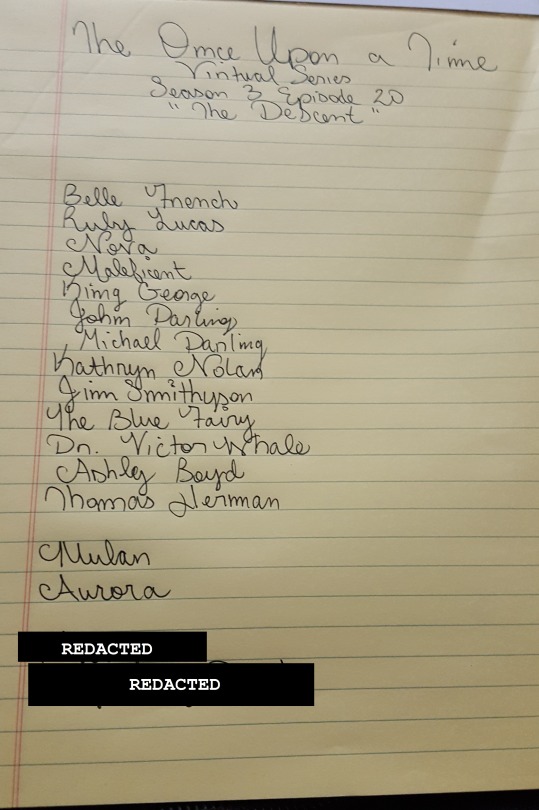 The Once Upon a Time
Virtual Series
Season 3 Episode 20
"The Descent"
Belle French
Ruby Lucas
Nova
Maleficent
King George
John Darling
Michael Darling
Kathryn Nolan
Jim Smithyson
The Blue Fairy
Dr. Victor Whale
Ashley Boyd
Thomas Herman
Mulan
Aurora
REDACTED
REDACTED